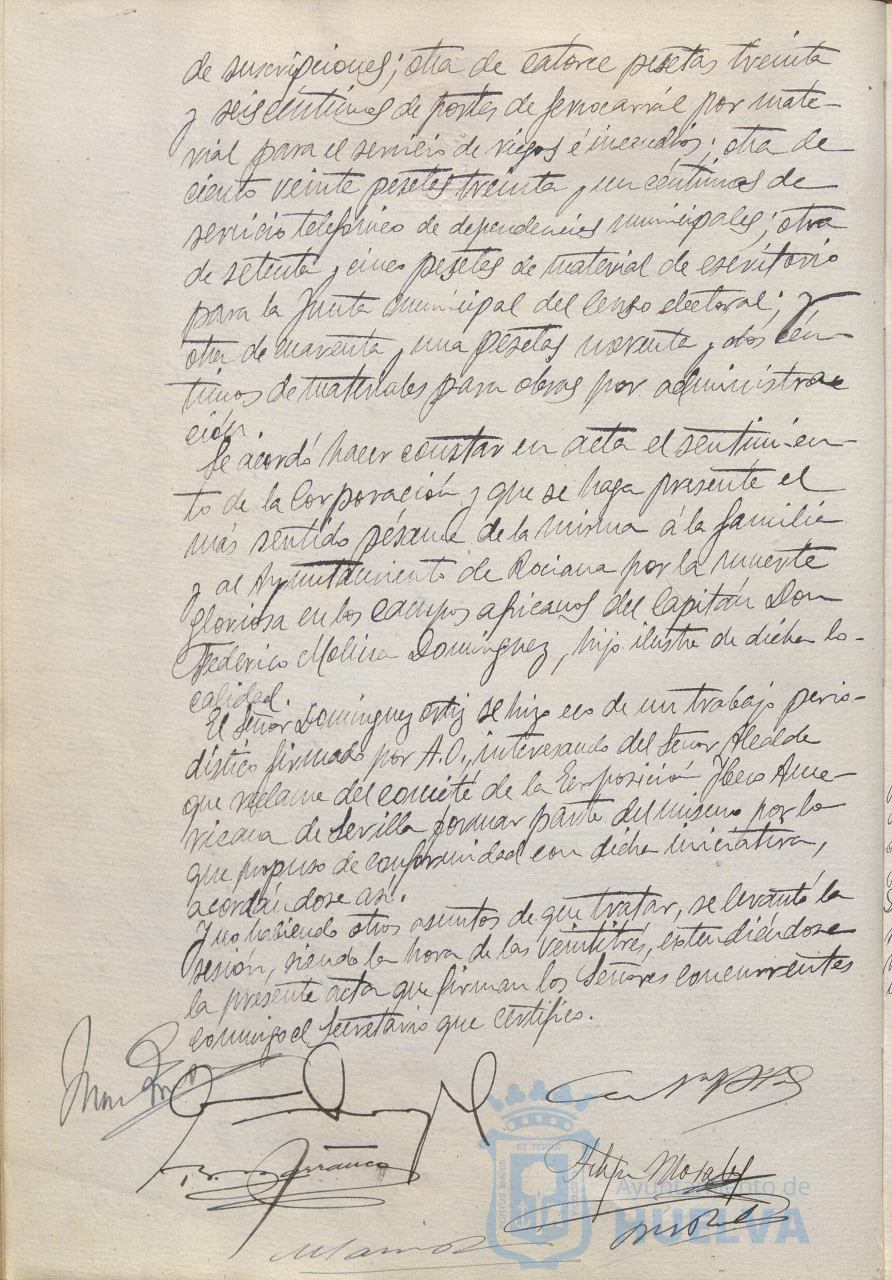 de suscripciones; otra de catorce pesetas treinta
y seis céntimos de portes de ferrocarril por mate-
rial para el servicio de riegos é incendios; otra de
ciento veinte pesetas treinta y un céntimos de
servicio telefónico de dependencias municipales; otra
de setenta y cinco pesetas de material de escritorio
para la Junta municipal del Censo electoral; y
otra de cuarenta y una pesetas noventa y dos cén-
timos de materiales para obras por administra-
ción.
Se acordó hacer constar en acta el sentimien-
to de la Corporación y que se haga presente el
más sentido pésame de la misma á la familia
y al Ayuntamiento de Rociana por la muerte
gloriosa en los campos africanos del Capitán Don
Federico Molina Domínguez, hijo ilustre de dicha lo-
calidad.
El Señor Domínguez Ortiz se hizo eco de un trabajo perio-
dístico firmado por A.O., interesando del Señor Alcalde
que reclame del comité de la Exposición Ibero Ame-
ricana de Sevilla formar parte del mismo por lo
que propuso de conformidad con dicha iniciativa,
acordándose así.
Y no habiendo otros asuntos de que tratar, se levantó la
sesión, siendo la hora de las veintitrés, extendiéndose
la presente acta que firman los Señores concurrentes
conmigo el Secretario que certifico.
Barranco
Felipe Morales
PORTUS MARIS ET TERRAE CUSTODIA
Ayuntamiento de
HUELVA